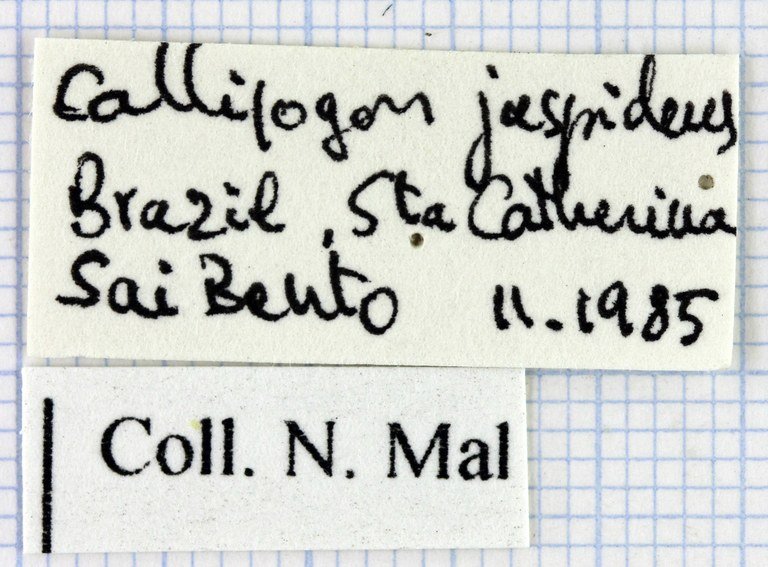 Callipogon jaspideus
Brazil, Sta Catherina
Sai Bento 11.1985
Coll. N. Mal